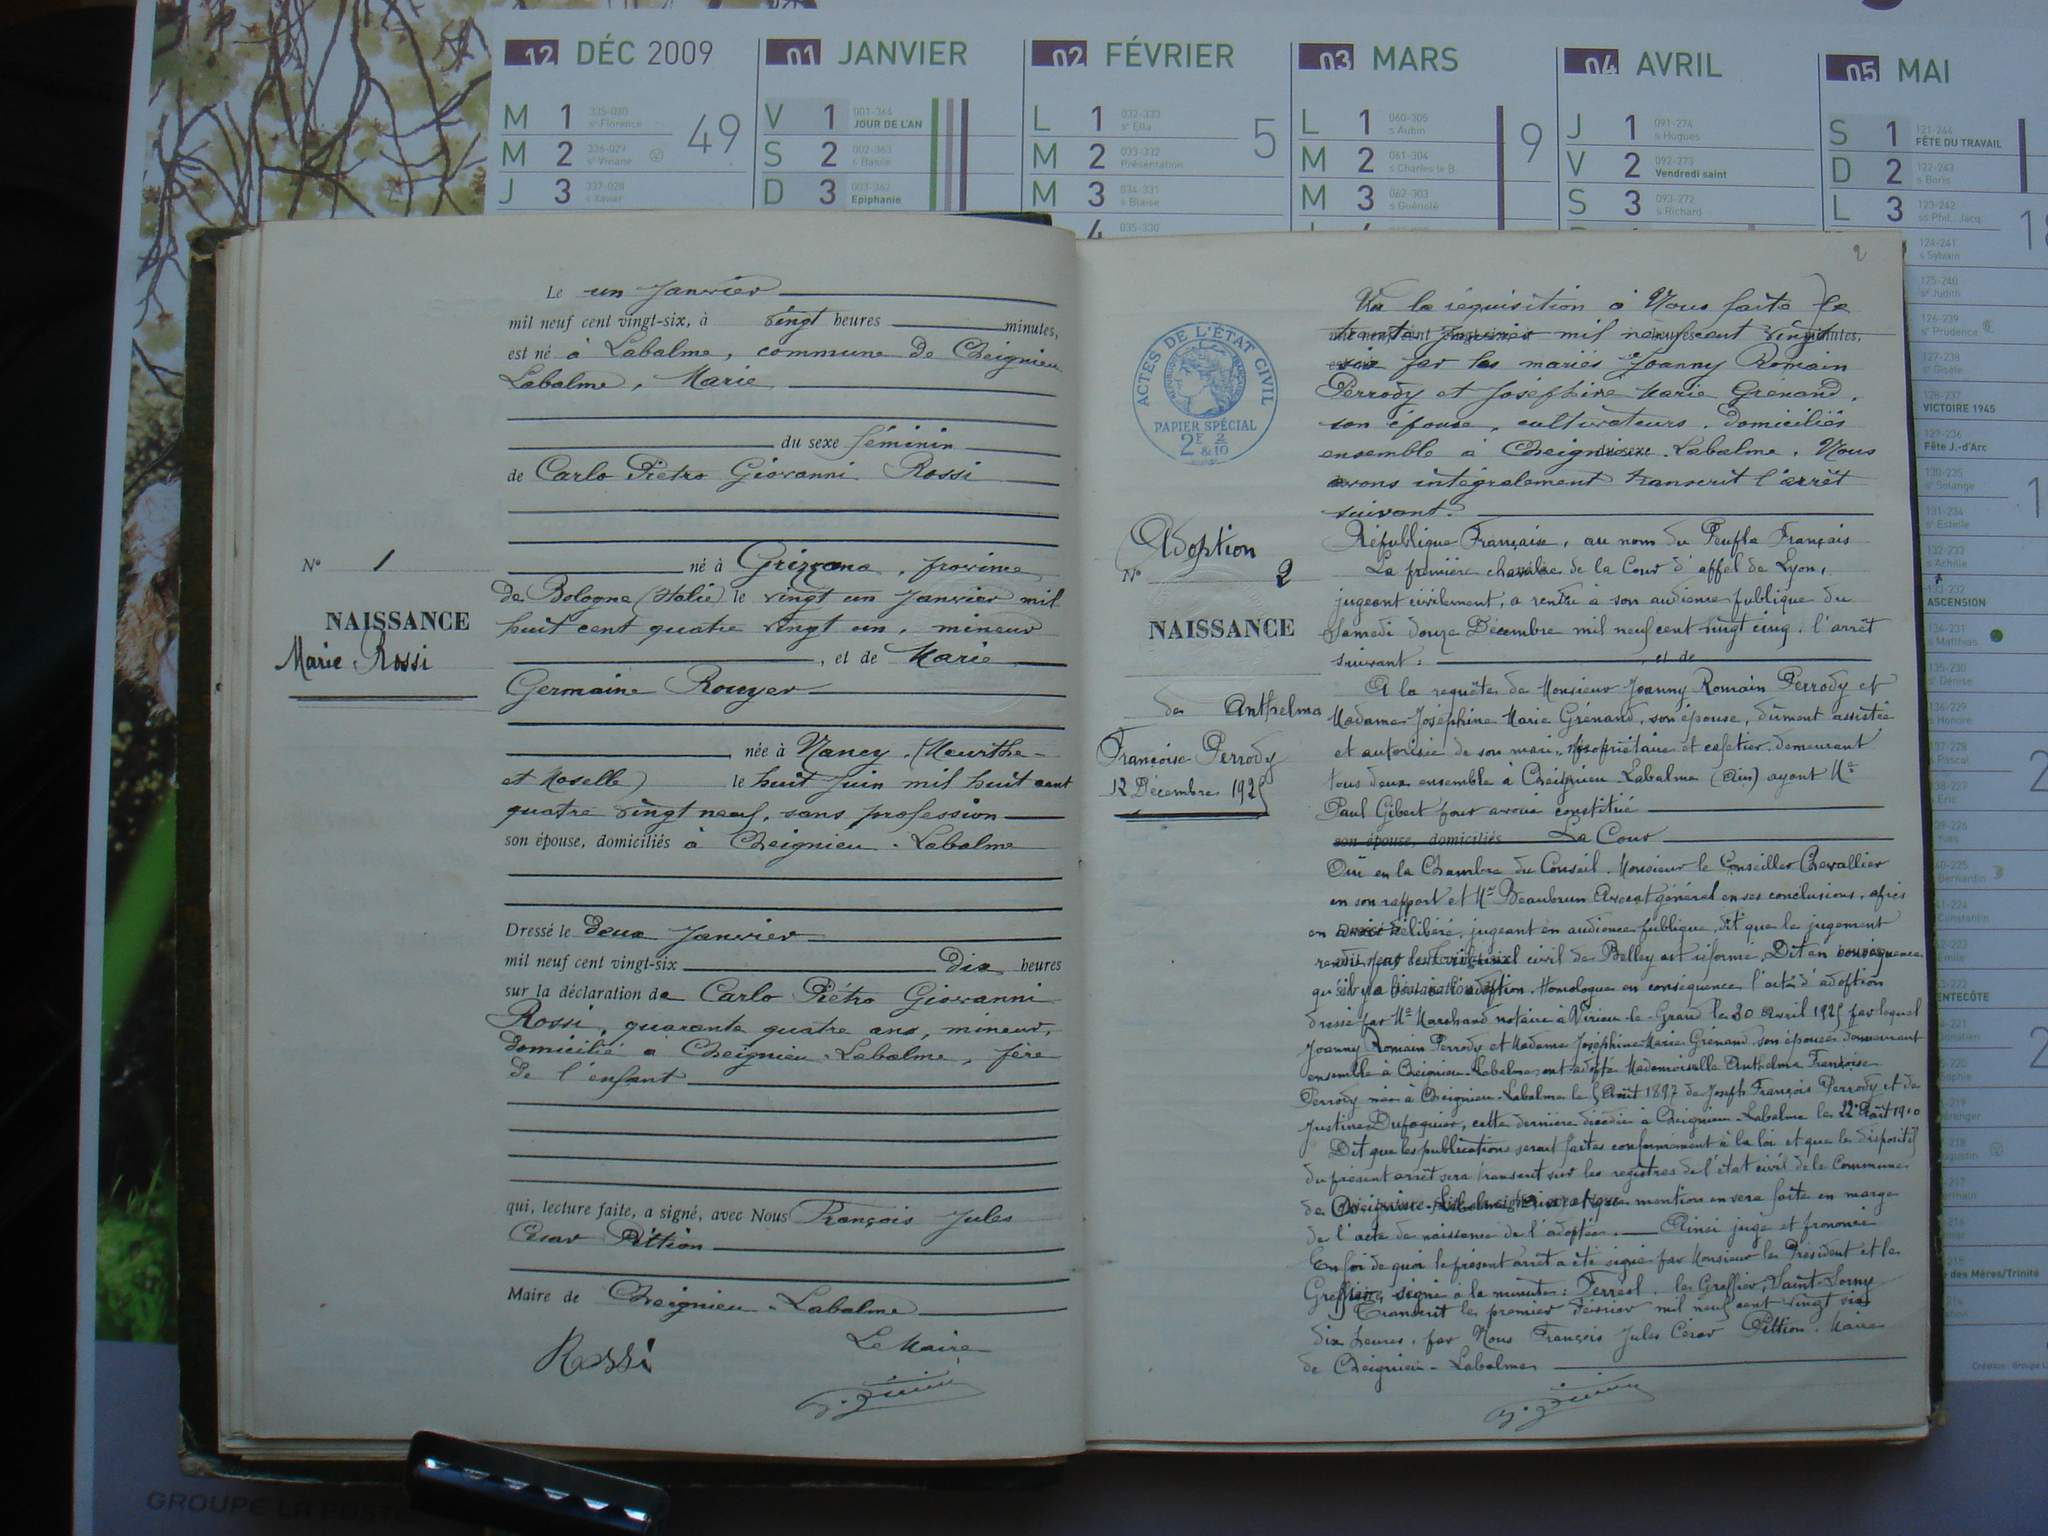 12 DÉC 2009
M 1 335-030 sᵉ Florence 49
M 2 336-029 sᵉ Viviane
J 3 337-028 s Xavier
01 JANVIER
V 1 001-364 JOUR DE L'AN
S 2 002-363 s Basile
D 3 003-362 Epiphanie
02 FÉVRIER
L 1 032-333 sᵉ Ella 5
M 2 033-332 Présentation
M 3 034-331 s Blaise
4 035-330
03 MARS
L 1 060-305 s Aubin 9
M 2 061-304 s Charles le B.
M 3 062-303 s Guénolé
04 AVRIL
J 1 091-274 s Hugues
V 2 092-273 Vendredi saint
S 3 093-272 s Richard
05 MAI
S 1 121-244 FÊTE DU TRAVAIL
D 2 122-243 s Boris
L 3 123-242 ss Phil., Jacq.
124-241 s Sylvain
125-240 sᵉ Judith
126-239 sᵉ Prudence
127-238 sᵉ Gisèle
VICTOIRE 1945
Fête J.-d'Arc
ASCENSION
ENTECÔTE
des Mères/Trinité
Le un Janvier
mil neuf cent vingt-six, à vingt heures minutes,
est né à Labalme, commune de Cheignieu
Labalme, Marie
du sexe féminin
de Carlo Pietro Giovanni Rossi
N° 1
NAISSANCE
Marie Rossi
né à Grizzana, province
de Bologne (Italie) le vingt un Janvier mil
huit cent quatre vingt un, mineur
, et de Marie
Germaine Rouyer
née à Nancy (Meurthe-
et Moselle) le huit Juin mil huit cent
quatre vingt neuf, sans profession
son épouse, domiciliés à Cheignieu-Labalme
Dressé le deux Janvier
mil neuf cent vingt-six dix heures
sur la déclaration de Carlo Piétro Giovanni
Rossi, quarante quatre ans, mineur,
domicilié à Cheignieu-Labalme, père
de l'enfant
qui, lecture faite, a signé, avec Nous François Jules
César Pittion
Maire de Cheignieu-Labalme
Rossi
Le Maire
2
ACTES DE L'ÉTAT CIVIL
PAPIER SPÉCIAL
2F & 2/10
Adoption
N° 2
NAISSANCE
de Anthelma
Françoise Perrody
12 Décembre 1925
Vu la réquisition à Nous faite le
trente Janvier mil neuf cent vingt
six par les mariés Joanny Romain
Perrody et Joséphine Marie Grénand,
son épouse, cultivateurs, domiciliés
ensemble à Cheignieu-Labalme, Nous
avons intégralement transcrit l'arrêt
suivant.
République Française, au nom du Peuple Français
La première chambre de la Cour d'appel de Lyon,
jugeant civilement, a rendu à son audience publique du
Samedi douze Décembre mil neuf cent vingt cinq, l'arrêt
suivant : , et de
A la requête de Monsieur Joanny Romain Perrody et
Madame Joséphine Marie Grénand, son épouse, dûment assistée
et autorisée de son mari, propriétaires et cafetier, demeurant
tous deux ensemble à Cheignieu Labalme (Ain) ayant Mᵉ
Paul Gibert pour avoué constitué
son épouse, domiciliés La Cour
Ouï en la Chambre du Conseil Monsieur le Conseiller Chevallier
en son rapport et Mᵉ Beaubrun Avocat général en ses conclusions, après
en avoir délibéré, jugeant en audience publique, dit que le jugement
rendu par le Tribunal civil de Belley est réformé, Dit en conséquence
qu'il y a lieu à l'adoption. Homologue en conséquence l'acte d'adoption
dressé par Mᵉ Marchand notaire à Virieu-le-Grand le 20 Avril 1925 par lequel
Joanny Romain Perrody et Madame Joséphine Marie Grénand son épouse demeurant
ensemble à Cheignieu-Labalme ont adopté Mademoiselle Anthelma Françoise
Perrody née à Cheignieu-Labalme le 5 Août 1897 de Joseph François Perrody et de
Justine Dufoquier, cette dernière décédée à Cheignieu-Labalme le 22 Août 1910
Dit que les publications seront faites conformément à la loi et que le dispositif
du présent arrêt sera transcrit sur les registres de l'état civil de la Commune
de Cheignieu-Labalme et que mention en sera faite en marge
de l'acte de naissance de l'adoptée. Ainsi jugé et prononcé
En foi de quoi le présent arrêt a été signé par Monsieur le Président et le
Greffier, signé à la minute : le Greffier,
Transcrit le premier Février mil neuf cent vingt six
dix heures, par Nous François Jules César Pittion, Maire
de Cheignieu-Labalme
GROUPE LA POSTE